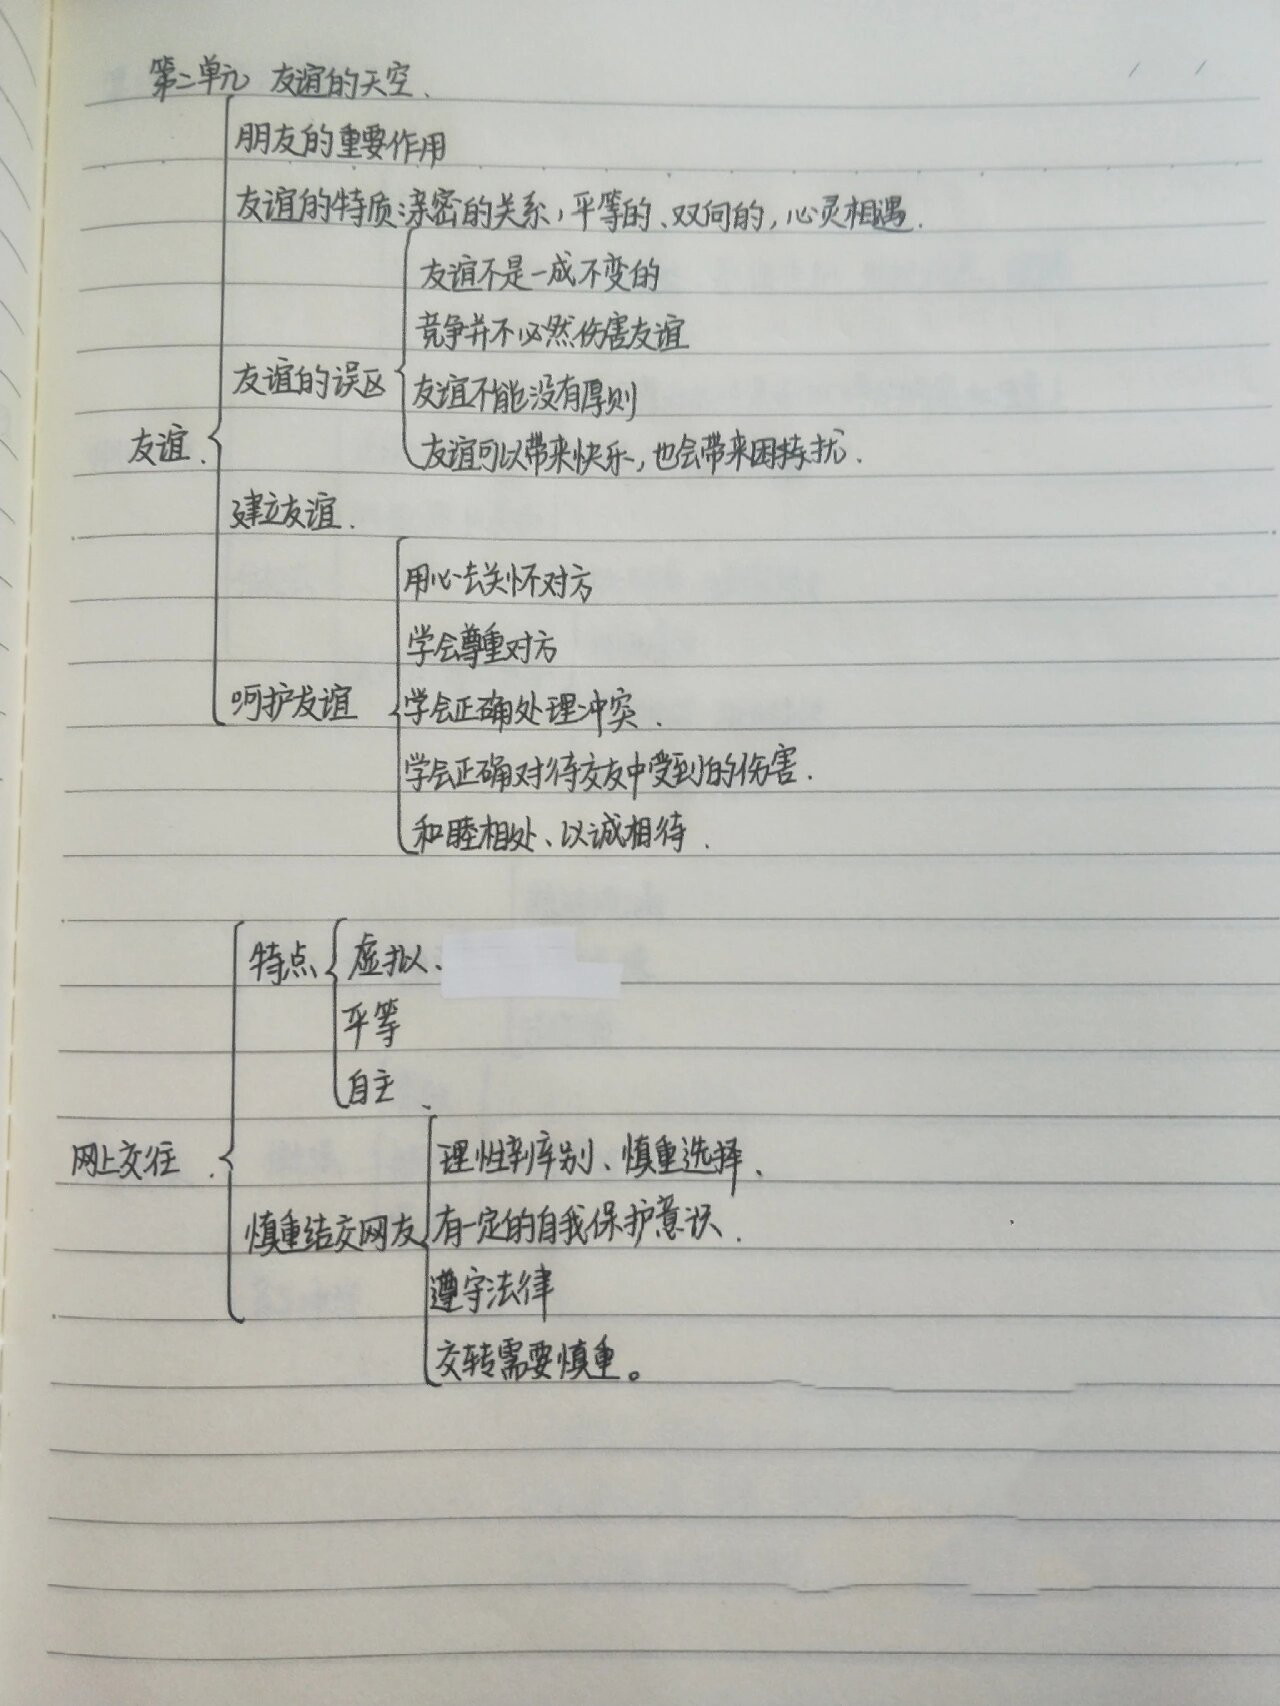 第二单元 友谊的天空.
朋友的重要作用
友谊的特质:亲密的关系,平等的、双向的,心灵相遇.
友谊不是一成不变的
竞争并不必然伤害友谊
友谊的误区
友谊不能没有厚则
友谊可以带来快乐,也会带来困扰.
友谊.
建立友谊.
用心去关怀对方
学会尊重对方
呵护友谊
学会正确处理冲突.
学会正确对待交友中受到的伤害.
和睦相处、以诚相待.
特点
虚拟、
平等
自主
网上交往.
理性辨别、慎重选择、
慎重结交网友
有一定的自我保护意识.
遵守法律
交转需要慎重。